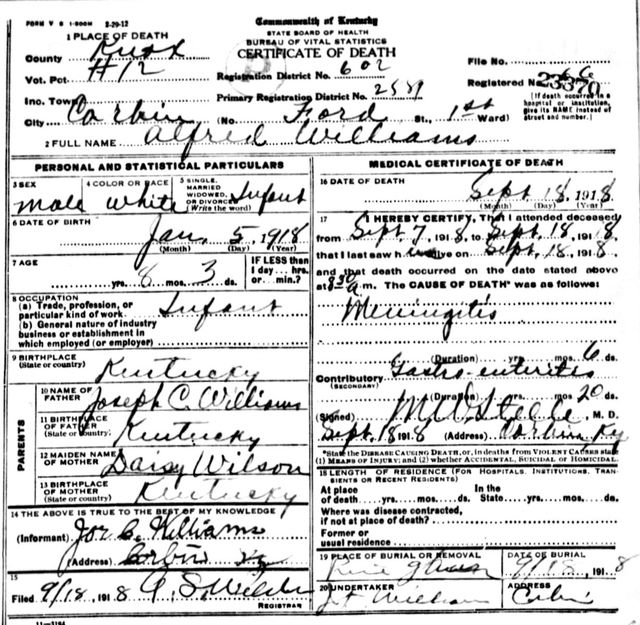 FORM V S 1-500M 2-29-12
Commonwealth of Kentucky
STATE BOARD OF HEALTH
BUREAU OF VITAL STATISTICS
CERTIFICATE OF DEATH
1 PLACE OF DEATH
County Knox
Vot. Pct #12
Inc. Town
City Corbin (No. Ford St., 1st Ward)
Registration District No. 602
Primary Registration District No. 2581
File No.
Registered No. 66
23370
[If death occurred in a hospital or institution, give its NAME instead of street and number.]
2 FULL NAME Alfred Williams
PERSONAL AND STATISTICAL PARTICULARS
3 SEX male
4 COLOR OR RACE white
5 SINGLE, MARRIED WIDOWED, OR DIVORCED (Write the word) Infant
6 DATE OF BIRTH
Jan. 5, 1918
(Month) (Day) (Year)
7 AGE
yrs. 8 mos. 3 ds.
IF LESS than 1 day... hrs. or min.?
8 OCCUPATION
(a) Trade, profession, or particular kind of work Infant
(b) General nature of industry business or establishment in which employed (or employer)
9 BIRTHPLACE
(State or country) Kentucky
PARENTS
10 NAME OF FATHER Joseph C. Williams
11 BIRTHPLACE OF FATHER (State or country) Kentucky
12 MAIDEN NAME OF MOTHER Daisy Wilson
13 BIRTHPLACE OF MOTHER (State or country) Kentucky
14 THE ABOVE IS TRUE TO THE BEST OF MY KNOWLEDGE
(Informant) Joe C. Williams
(Address) Corbin Ky
15
Filed 9/18, 1918
REGISTRAR
11-3184
MEDICAL CERTIFICATE OF DEATH
16 DATE OF DEATH
Sept 18, 1918
(Month) (Day) (Year)
17 I HEREBY CERTIFY, That I attended deceased
from Sept. 7, 1918, to Sept. 18, 1918,
that I last saw him alive on Sept. 18, 1918,
and that death occurred on the date stated above
at 830 a m. The CAUSE OF DEATH* was as follows:
Meningitis
(Duration) yrs. mos. 6 ds.
Contributory Gastro-enteritis
(SECONDARY)
(Duration) yrs. mos. 20 ds.
(Signed) M.D.
Sept. 18 1918 (Address) Corbin Ky
*State the DISEASE CAUSING DEATH, or, in deaths from VIOLENT CAUSES state (1) MEANS OF INJURY; and (2) whether ACCIDENTAL, SUICIDAL or HOMICIDAL.
18 LENGTH OF RESIDENCE (FOR HOSPITALS, INSTITUTIONS, TRANSIENTS OR RECENT RESIDENTS)
At place of death yrs. mos. ds. In the State yrs. mos. ds.
Where was disease contracted, if not at place of death?
Former or usual residence
19 PLACE OF BURIAL OR REMOVAL
DATE OF BURIAL
9/18, 1918
20 UNDERTAKER
ADDRESS